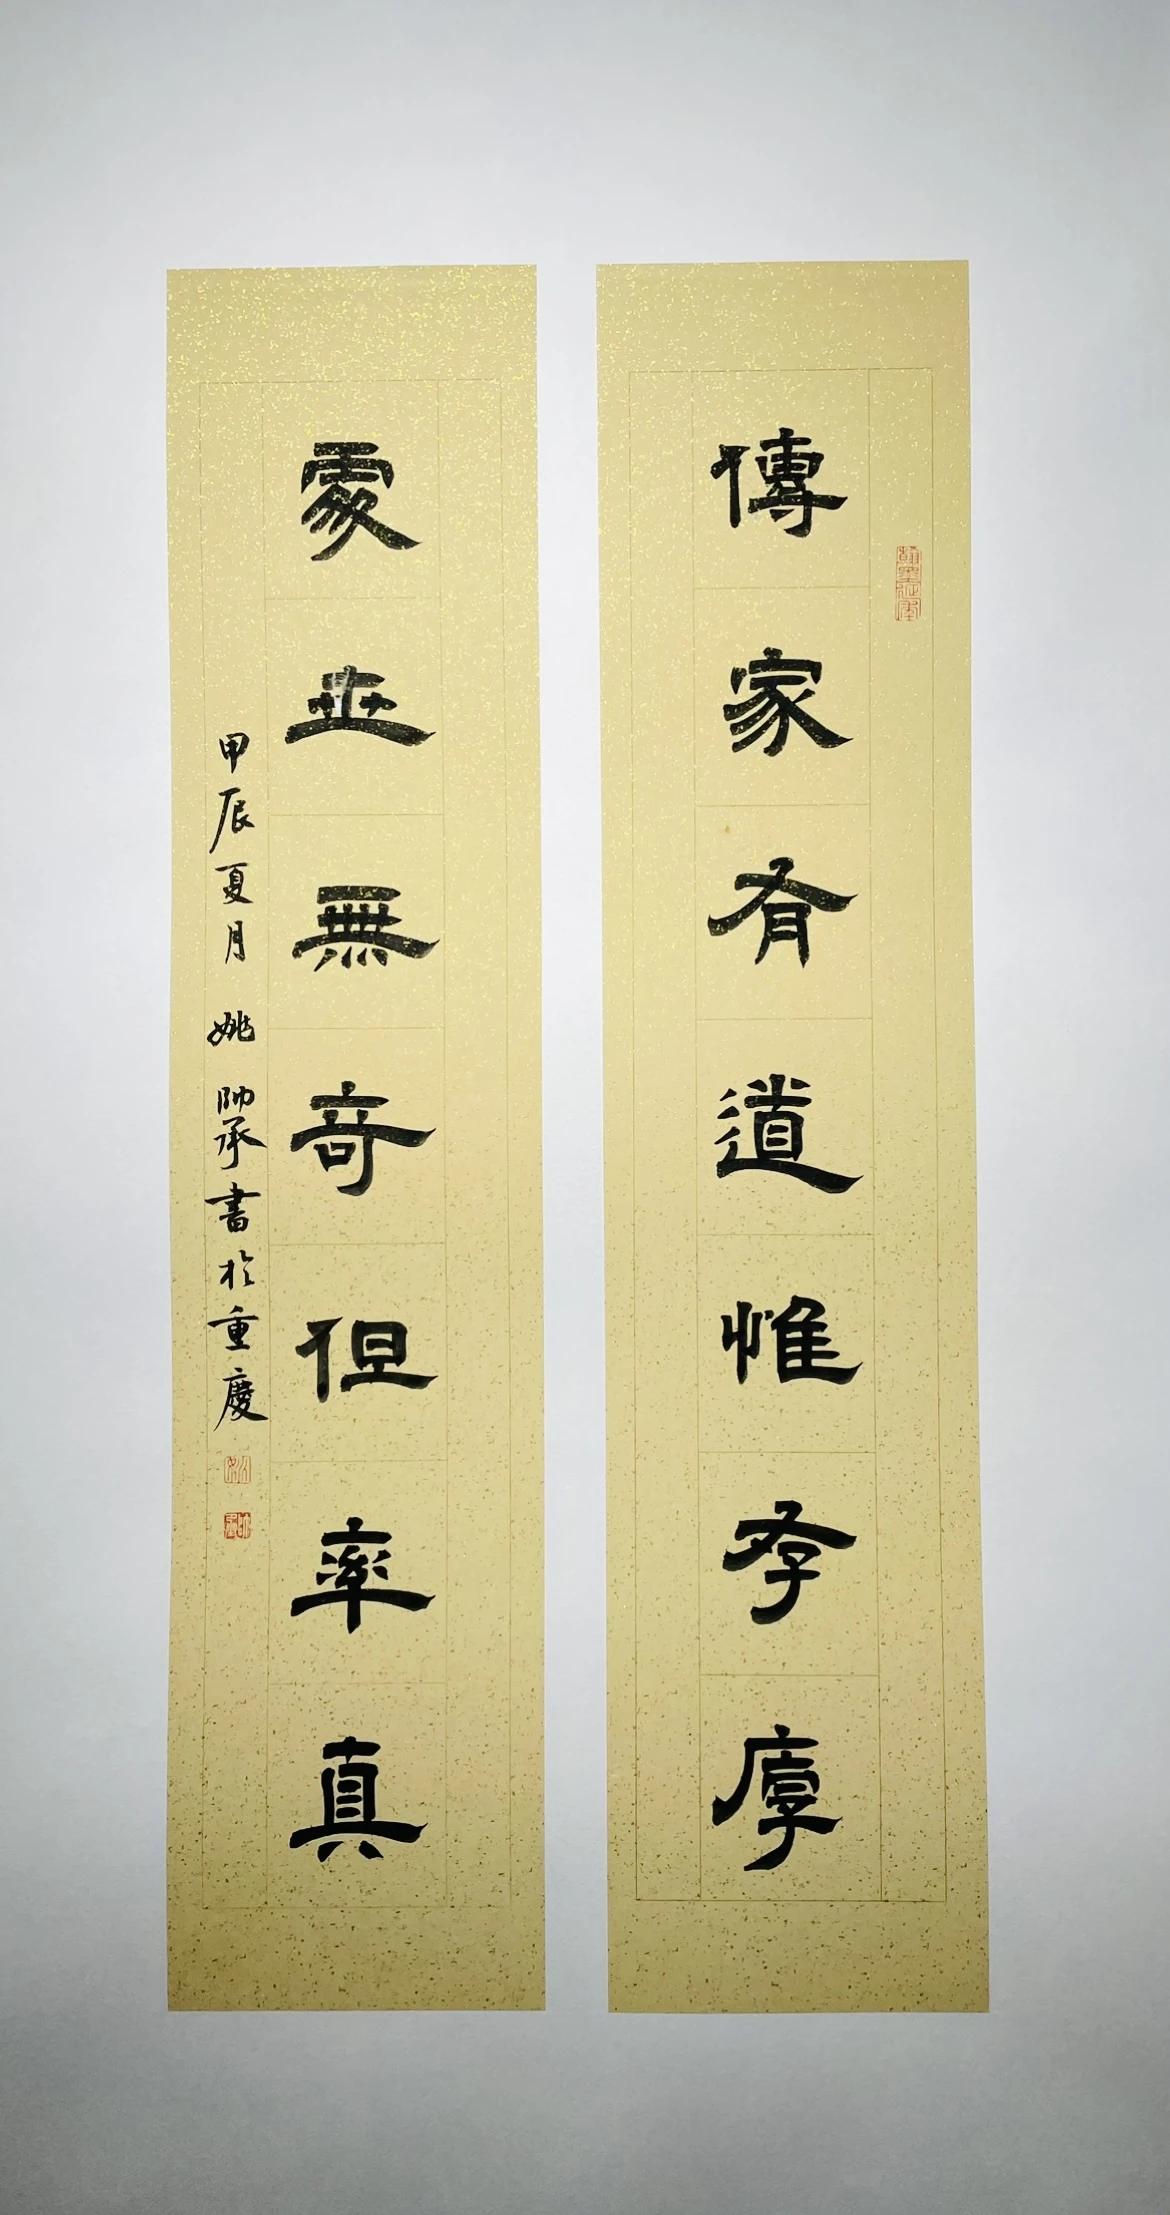 傳家有道惟孝厚
處世無奇但率真
甲辰夏月 姚帥承書於重慶